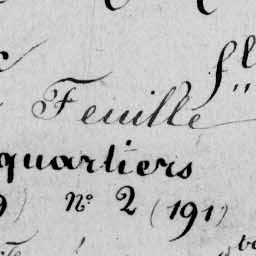 Feuille
quartiers
9) n° 2 (191)